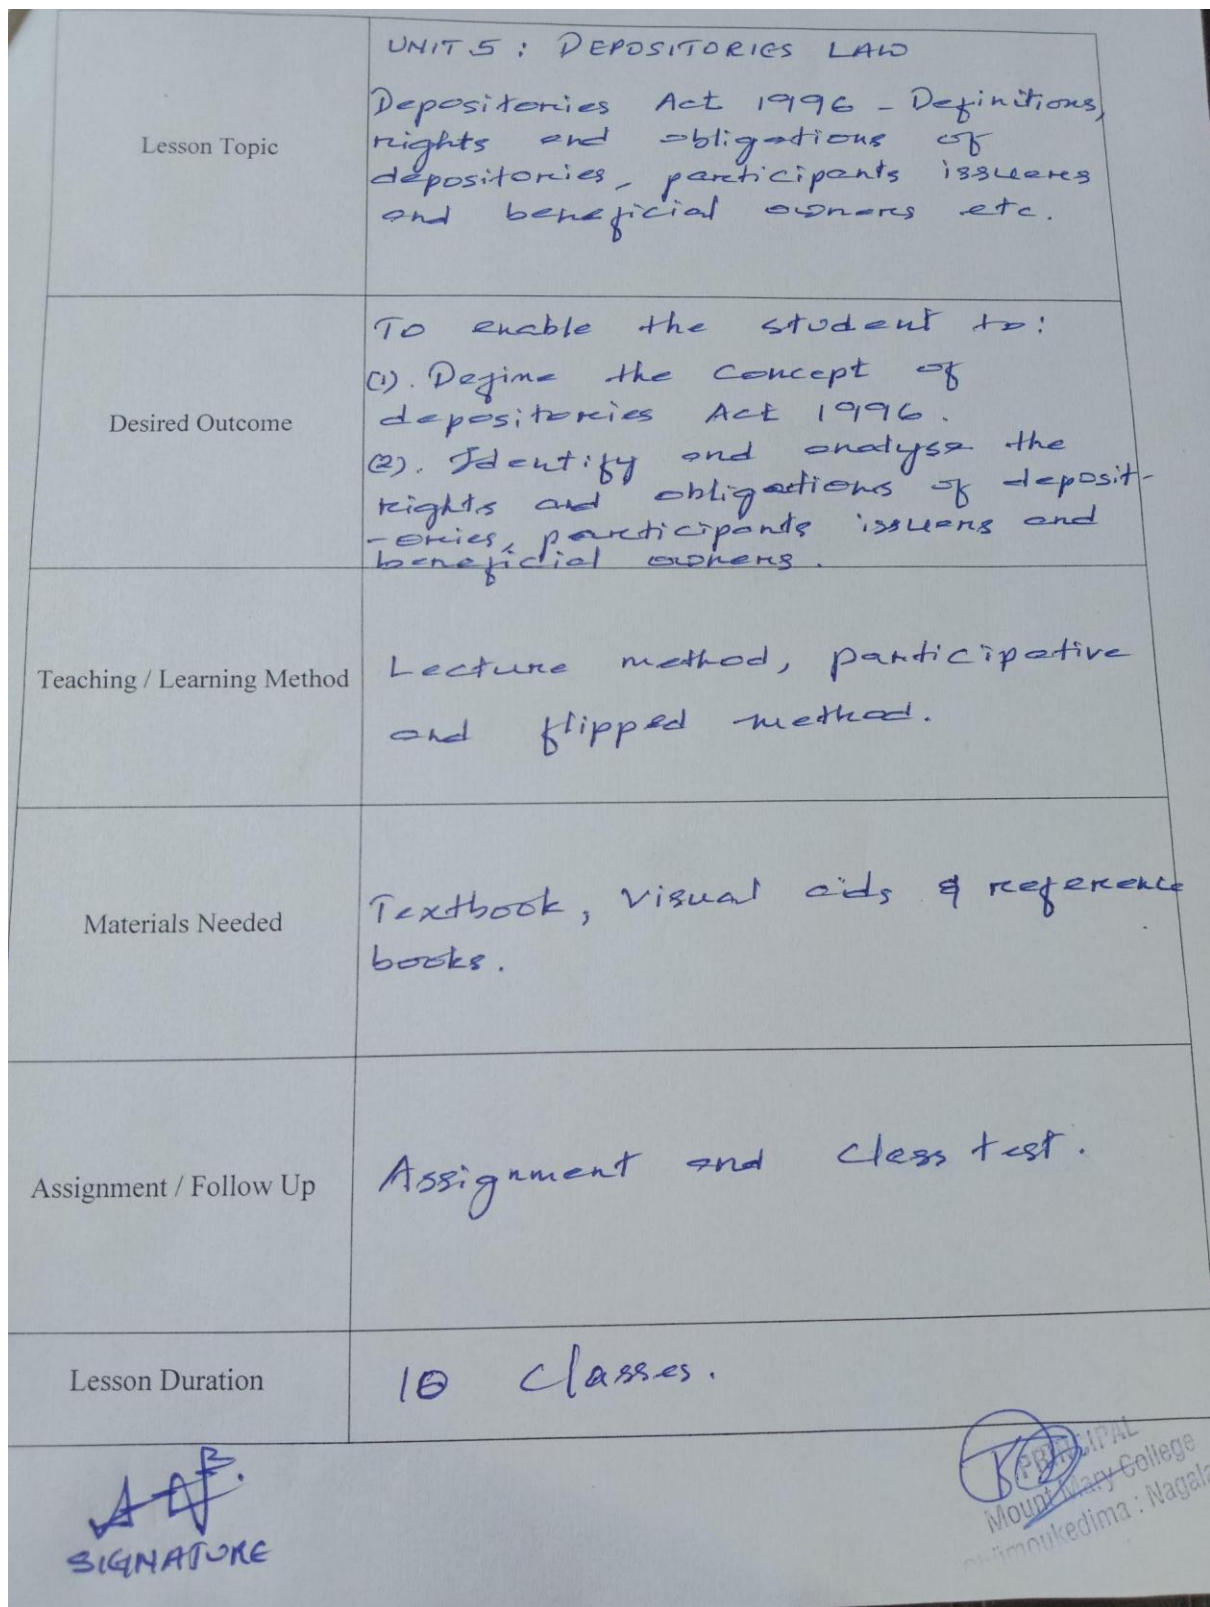 UNIT 5 : DEPOSITORIES LAW
Lesson Topic
Depositories Act 1996 - Definitions,
rights and obligations of
depositories, participants issueres
and beneficial owners etc.
Desired Outcome
To enable the student to:
(1). Define the concept of
depositories Act 1996.
(2). Identify and analyse the
rights and obligations of deposit-
-ories, participants issuers and
beneficial owners.
Teaching / Learning Method
Lecture method, participative
and flipped method.
Materials Needed
Textbook, Visual aids & reference
books.
Assignment / Follow Up
Assignment and class test.
Lesson Duration
10 classes.
SIGNATURE
PRINCIPAL
Mount Mary College
: Nagala